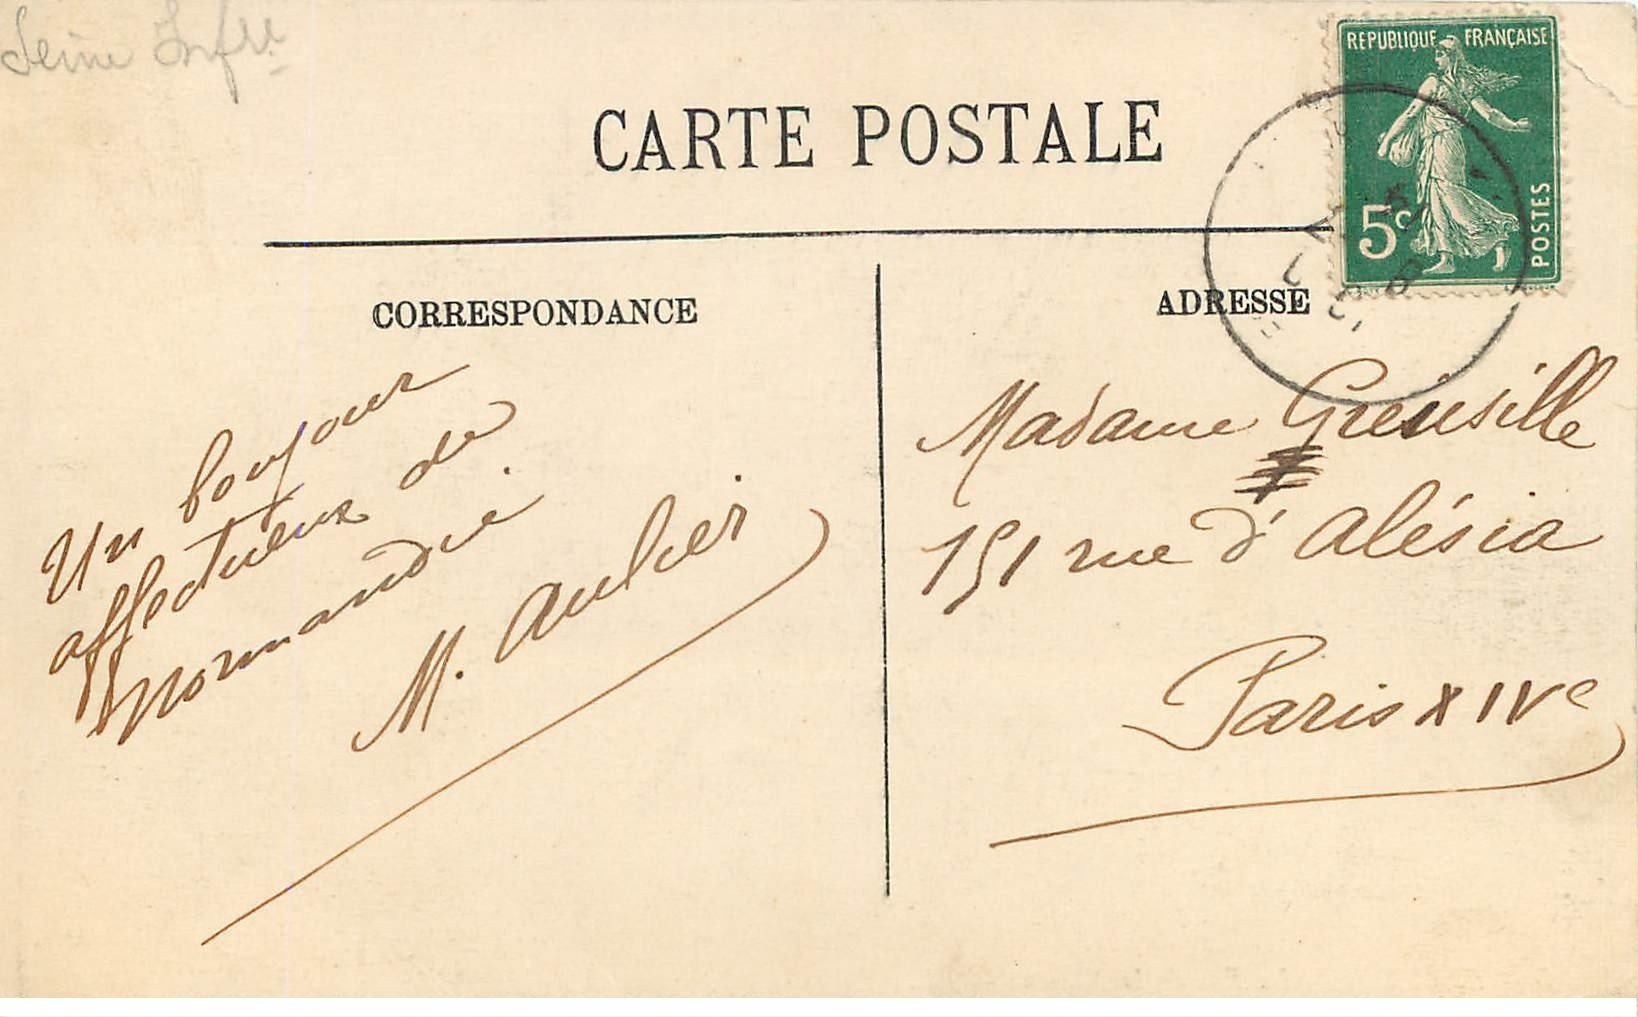 Seine Infre
CARTE POSTALE
REPUBLIQUE FRANÇAISE
5c
POSTES
CORRESPONDANCE
Un bonjour
affectueux de
Normandie.
M. Aubier
ADRESSE
Madame Greusille
151 rue d'Alésia
Paris XIVe